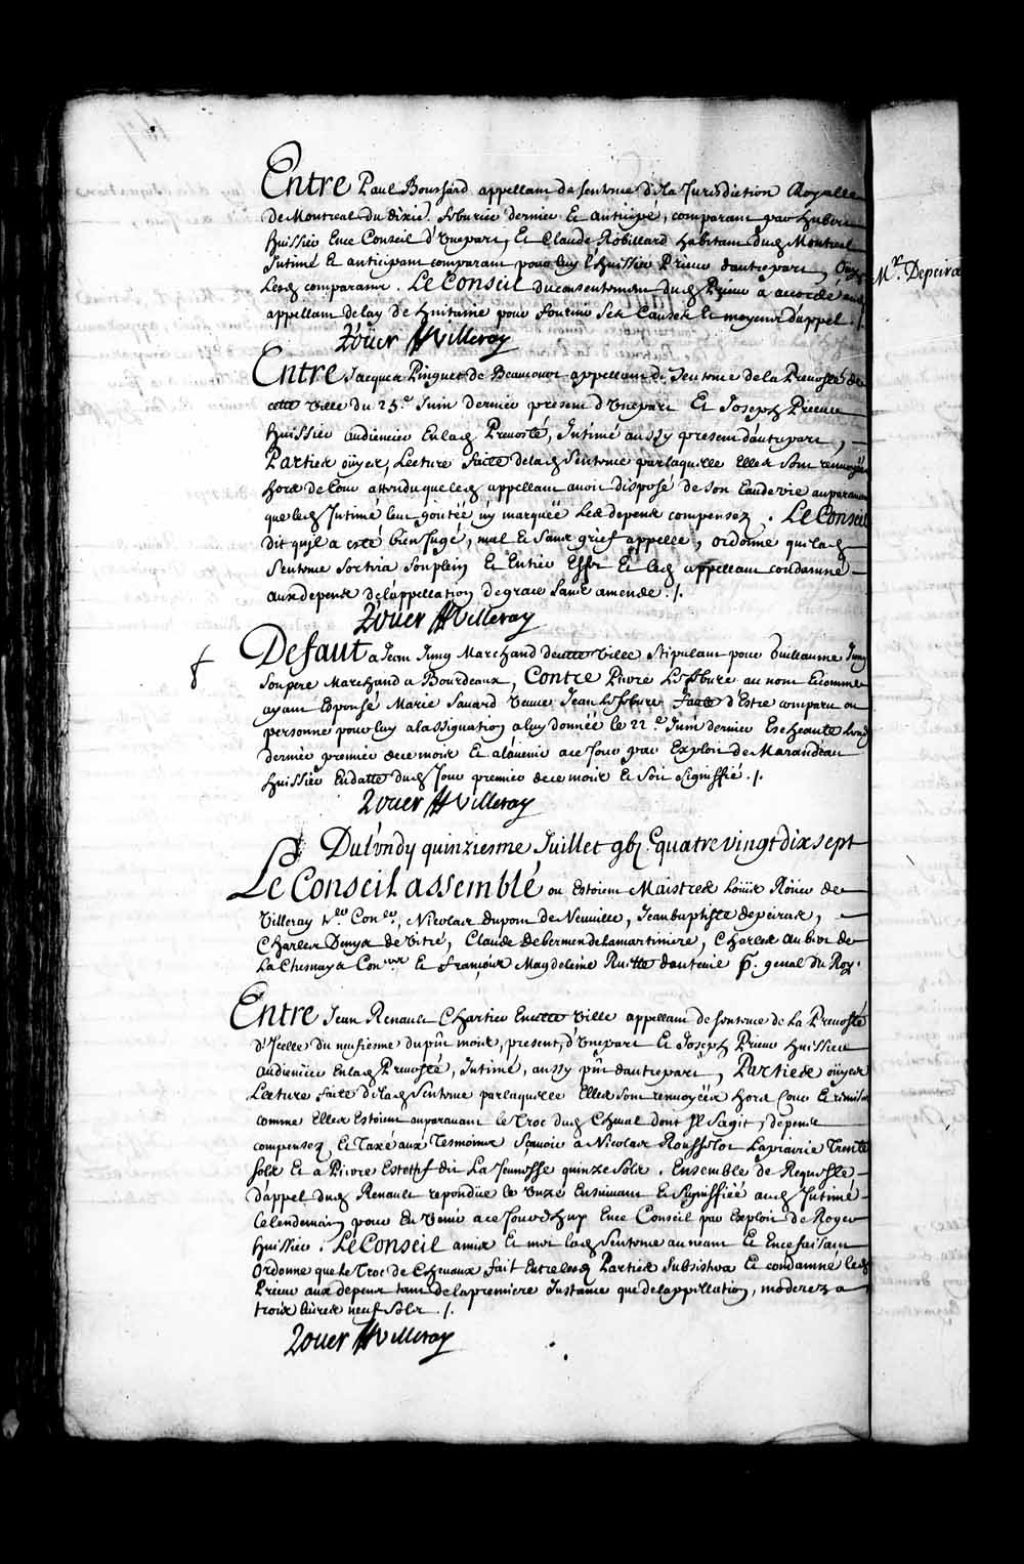 Entre Paul Boussard appellant de sentence de la Jurisdiction Royalle
de Montreal du dixie. feburier dernier Et anticipé, comparant par hubert
huissier Ence Conseil d'Vnepart, Et Claude Robillard habitant dud Montreal
Intimé Et anticipant comparant pour luy l'huissier Prieur dautrepart, Ouys
Lesd comparans. Le Conseil du consentement dud Prieur a accordé aud
appellant delay de huitaine pour fournir ses Causes Et moyens dappel ./.
Roüer De Villeray
Entre Jacques Pinguet de Beaucour appellant de Sentence de la Prevosté de
cette Ville du 25.e Juin dernier present d'Vnepart Et Joseph Prieur
huissier audiencier Enlad Prevosté, Intimé aussy present dautrepart,
Parties oüyes, Lecture faite delad Sentence parlaquelle Elles sont renvoyées
hors de Cour attendu que led appellant auoit disposé de son Eaudevie auparauant
que led Intimé leut goutée ny marquée Les depens compensez. Le Conseil
dit quil a esté bien Jugé, mal Et sans grief appellé, ordonne que lad
Sentence sortira son plein Et Entier Effet Et led appellant condamné
aux depens delappellation de grace sans amende ./.
Roüer De Villeray
Defaut a Jean Jung Marchand decette Ville Stipulant pour Guillaume Jung
Son pere Marchand a Bourdeaux, Contre Pierre Lefebure au nom Et comme
ayant Espousé Marie Sauard Veuue Jean Lefebure faute d'Estre comparu ou
personne pour luy alassignation aluy donnée le 22.e Juin dernier Escheante Lundy
dernier premier dece mois Et alauenir ace Jour par Exploit de Marandeau
huissier Endatte dud Jour premier dece mois Et soit signiffié ./.
Roüer De Villeray
Du Lvndy quinziesme Juillet gbj C quatre vingt dix sept
Le Conseil assemblé ou Estoient Maistres Loüis Roüer de
Villeray Con.er, Nicolas dupont de Neuuille, Jean baptiste depeiras,
Charles Denys de Vitré, Claude de bermen de lamartiniere, Charles aubert de
La Chesnaye Con.ers Et françois Magdeleine Ruette dauteuil P. g̅nal du Roy.
Entre Jean Renault Chartier Encette Ville appellant de sentence de la Prevosté
d'Icelle du neufiesme du p̅nt mois, present, d'Vnepart Et Joseph Prieur huissier
audiencier Enlad Prevosté, Intimé, aussy p̅nt dautrepart, Parties oüyes
Lecture faite delad Sentence parlaquelle Elles sont renvoyées hors Cour Et remises
comme Elles Estoient auparauant le Troc dud Cheual dont Il s'agit, depens
compensez Et Taxé aux Tesmoins Sçauoir a Nicolas Rousselot Laprairie Trente
sols Et a Pierre dit La Jeunesse quinze Sols. Ensemble de Requeste
d'appel dud Renault repondüe le Vnze Ensuiuant Et Signiffiée aud Intimé
Lelendemain pour En Venir ace Jourd'huy Ence Conseil par Exploit de Roger
huissier. Le Conseil amis Et met lad Sentence au neant Et Ence faisant
Ordonne que le Troc de Cheuaux fait Entre lesd Parties Subsistera Et condamné led
Prieur aux depens tant de la premiere Instance que delappellation, moderez a
trois liures neuf sols ./.
Roüer De Villeray
Mr. Depeiras